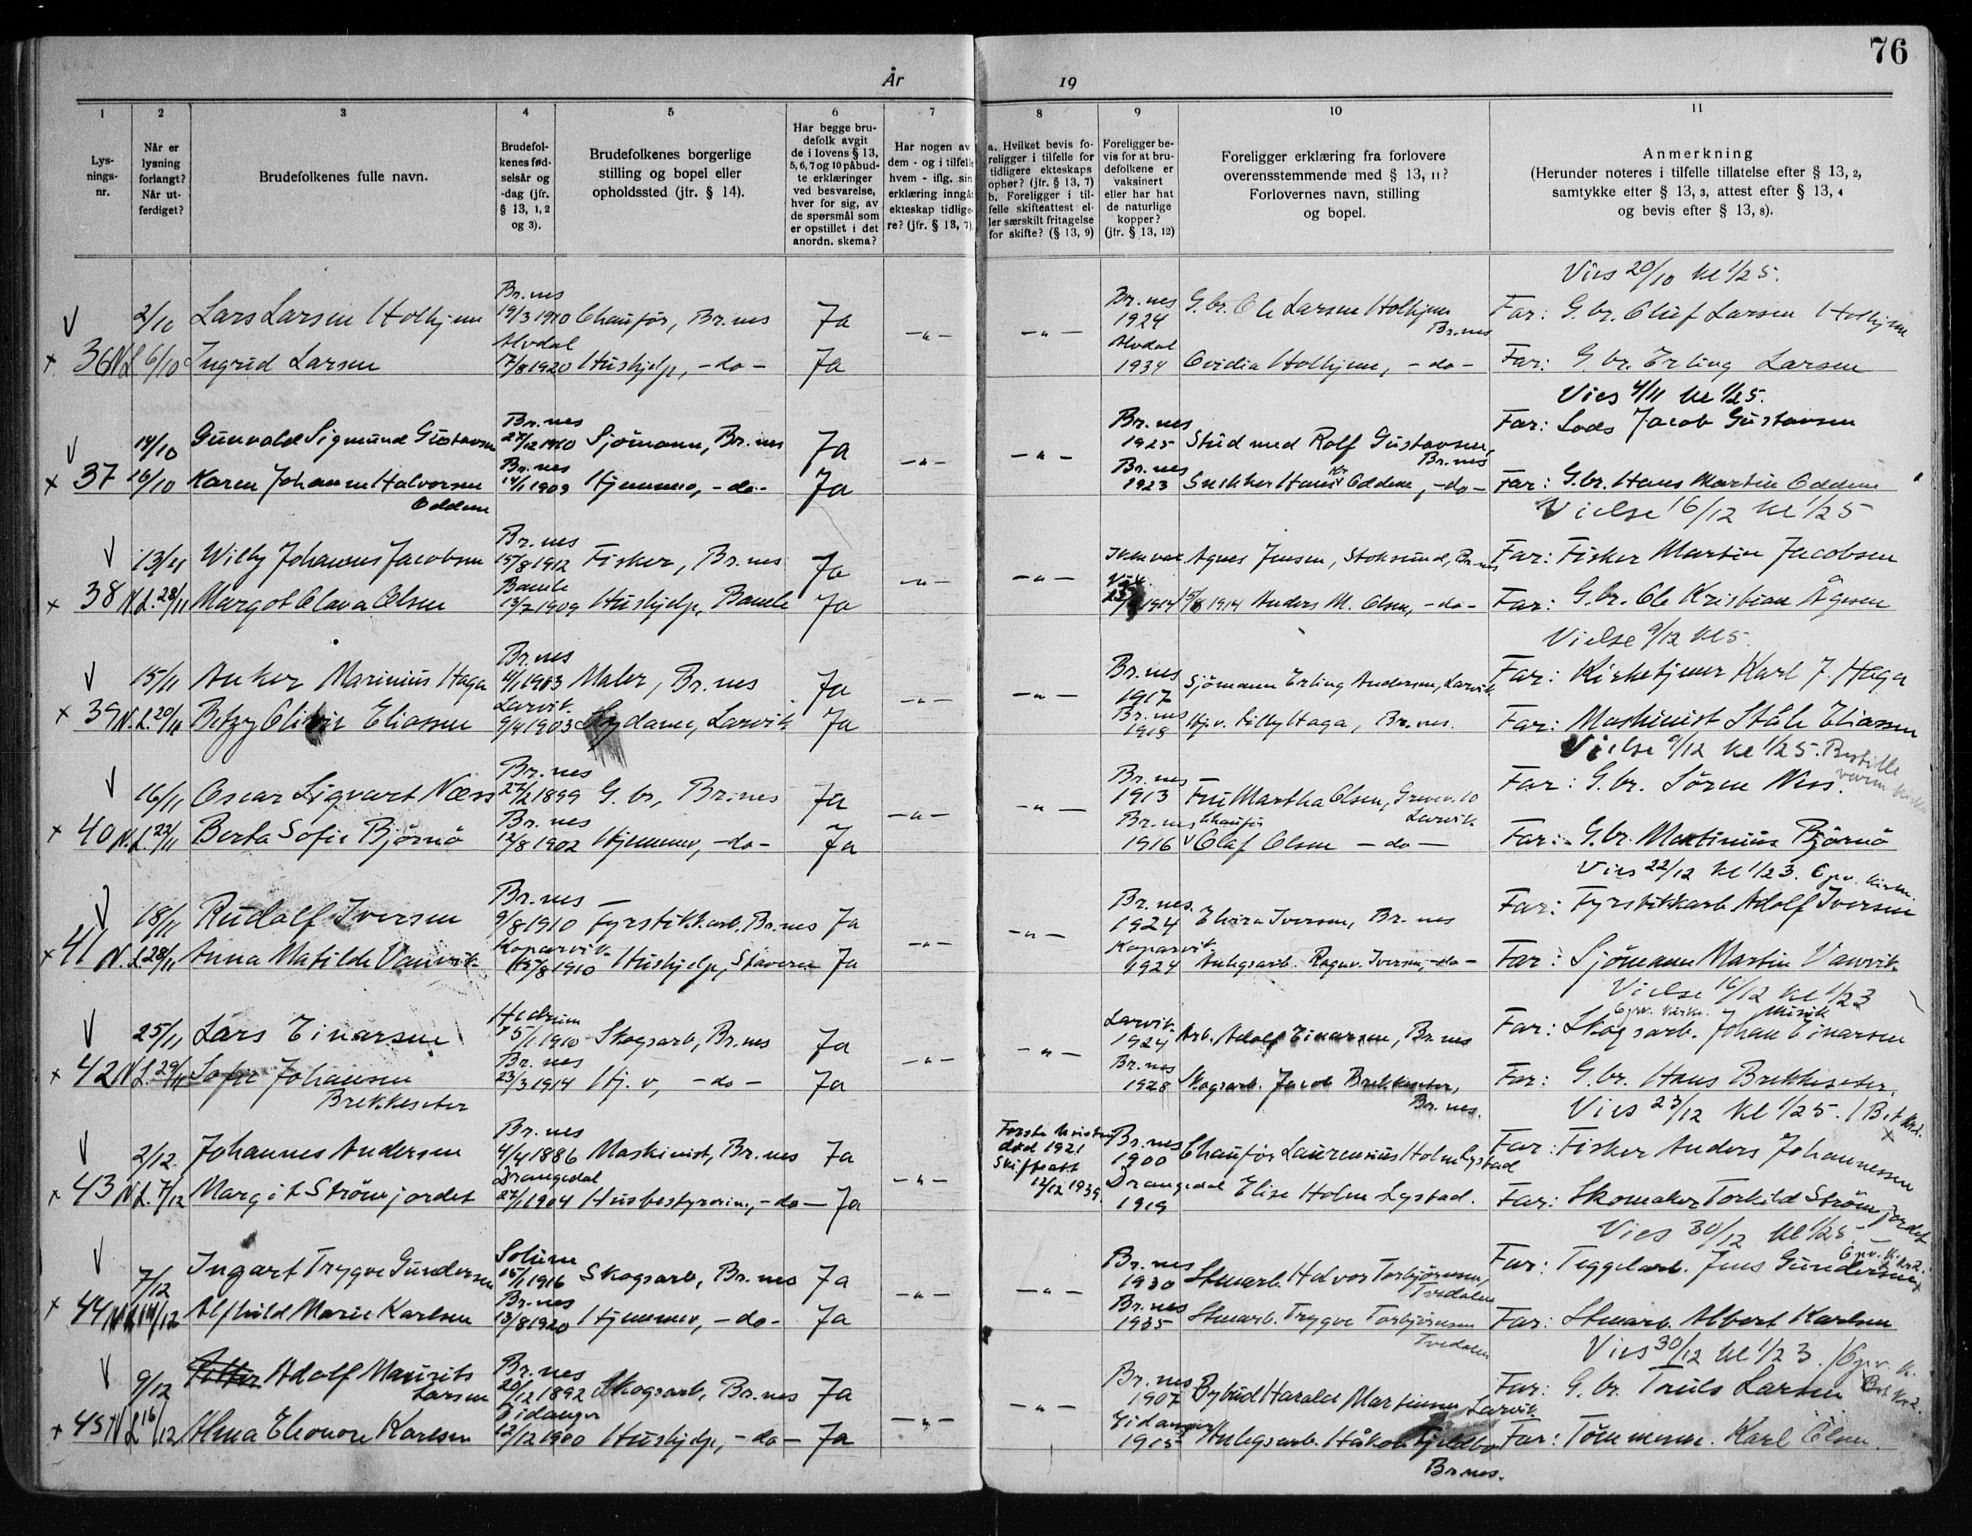 76
År 19
1 2 3 4 5 6 7 8 9 10 11
Lys-
nings-
nr.
Når er
lysning
forlangt?
Når ut-
ferdiget?
Brudefolkenes fulle navn.
Brudefol-
kenes fød-
selsår og
-dag (jfr.
§ 13, 1, 2
og 3).
Brudefolkenes borgerlige
stilling og bopel eller
opholdssted (jfr. § 14).
Har begge bru-
defolk avgit
de i lovens § 13,
5, 6, 7 og 10 påbud-
te erklæringer
ved besvarelse,
hver for sig, av
de spørsmål som
er opstillet i det
anordn. skema?
Har nogen av
dem - og i tilfelle
hvem - iflg. sin
erklæring inngåt
ekteskap tidlige-
re? (jfr. § 13, 7)
a. Hvilket bevis fo-
religger i tilfelle for
tidligere ekteskaps
ophør? (jfr. § 13, 7)
b. Foreligger i til-
felle skifteattest el-
ler særskilt fritagelse
for skifte? (§ 13, 9)
Foreligger be-
vis for at bru-
defolkene er
vaksinert
eller har hat
de naturlige
kopper?
(jfr. § 13, 12)
Foreligger erklæring fra forlovere
overensstemmende med § 13, 11?
Forlovernes navn, stilling
og bopel.
Anmerkning
(Herunder noteres i tilfelle tillatelse efter § 13, 2,
samtykke efter § 13, 3, attest efter § 13, 4
og bevis efter § 13, 8).
Vies 20/10 kl 1/2 5.
Br.nes Br.nes
2/10 Lars Larsen Holhjem 19/3 1910 Chaufør, Br.nes Ja 1924 G.br. Ole Larsen Holhjem Br.nes Far: G.br. Oluf Larsen Holhjem
Alvdal -"- -"- Alvdal
x 36 N.L. 6/10 Ingrid Larsen 17/8 1920 Hushjelp, -do- Ja 1934 Ovidia Holhjem, -do- Far: G.br. Erling Larsen
Vies 4/11 kl 1/2 5.
Br.nes Br.nes
14/10 Gunvald Sigmund Gustavsen 27/12 1910 Sjømann, Br.nes Ja 1925 Stud med Rolf Gustavsen, Br.nes Far: Lods Jacob Gustavsen
Br.nes -"- -"- Br.nes
x 37 16/10 Karen Johanne Halvorsen 14/1 1909 Hjemmev, -do- Ja 1923 Snekker Hans Kr Oddene, -do- Far: G.br. Hans Martin Oddene
Oddene
Vielse 16/12 kl 1/2 5
Br.nes
13/11 Willy Johannes Jacobsen 15/8 1912 Fisker, Br.nes Ja Agnes Jensen, Stoksund, Br.nes Far: Fisker Martin Jacobsen
Bamle -"- -"-
x 38 N.L. 28/11 Margot Olava Olsen 13/2 1909 Hushjelp, Bamle Ja 1914 Anders M. Olsen, -do- Far: G.br. Ole Kristian Ågesen
Vielse 9/12 kl 5
Br.nes Br.nes
15/11 Anker Marinius Haga 4/1 1903 Maler, Br.nes Ja 1917 Sjømann Erling Andersen, Larvik Far: Kirketjener Karl J Haga
Larvik -"- -"- Br.nes
x 39 N.L. 20/11 Betzy Eliassen 9/4 1903 Sydame, Larvik Ja 1918 Hj.v. Lilly Haga, Br.nes. Far: Maskinist Ståle Eliassen
Vielse 9/12 kl 1/2 5. Bestille varm kirke
Br.nes Br.nes
16/11 Oscar Sigvart Næss 27/12 1899 G.br, Br.nes Ja 1913 Fru Martha Olsen, Grever. 10 Larvik Far: G.br. Søren Ness.
Br.nes -"- -"- Br.nes Chaufør
x 40 N.L. 22/11 Berta Sofie Bjørnø 12/8 1902 Hjemmev, -do- Ja 1916 Olaf Olsen -do- Far: G.br. Martinius Bjørnø
Vies 22/12 kl 1/2 3. Opv. kirke.
Br.nes Br.nes.
18/11 Rudolf Iversen 9/8 1910 Fyrstikkarb. Br.nes Ja 1924 Elvira Iversen, Br.nes Far: Fyrstikkarb Adolf Iversen
Kopervik -"- -"- Kopervik
x 41 N.L. 28/11 Anna Matilde Vanvik /8 1910 Hushjelp, Stavern Ja 1924 Anlegsarb. Ragnv. Iversen, -do- Far: Sjømann Martin Vanvik
Vielse 16/12 kl 1/2 3
Opv. kirke. Musik
Hedrum Larvik
25/11 Lars Einarsen 15/1 1910 Skogsarb, Br.nes Ja 1924 Arb. Adolf Einarsen, Br.nes Far: Skogsarb. Johan Einarsen
Br.nes -"- -"- Br.nes
x 42 N.L. 29/11 Sofie Johansen 23/3 1914 Hj.v, -do- Ja 1928 Skogsarb. Jacob Brekkeseter, Br.nes. Far: G.br. Hans Brekkeseter
Brekkeseter
Vies 23/12 kl 1/2 5.
Br.nes Første hustru død 1921 Br.nes
2/12. Johannes Andersen 4/4 1886 Maskinist, Br.nes Ja 1900 Chaufør Laurentius Holm Lystad Far: Fisker Anders Johannessen
Drangedal -"- Skifteatt 12/12 1939. Drangedal
x 43 N.L. 7/12 Margit Strømjordet 27/1 1904 Husbestyrerin, -do- Ja 1919 Elise Holm Lystad. Far: Skomaker Torkild Strømjordet
Vies 30/12 kl 1/2 5
Solum Br.nes
7/12 Ingart Trygve Gundersen 15/1 1916 Skogsarb, Br.nes Ja 1930 Stenarb. Halvor Torbjørnsen, Tvedalen Far: Teggelarb. Jens Gundersen
Br.nes -"- -"- Br.nes
x 44 N.L. 14/12 Alfhild Marie Karlsen 13/8 1920 Hjemmev, -do- Ja 1935 Stenarb. Trygve Torbjørnsen Tvedalen Far: Stenarb. Albert Karlsen
Vies 30/12 kl 1/2 3. /Opv. k.
Br.nes Br.nes
9/12 Adolf Maurits Larsen 20/12 1892 Skogsarb, Br.nes Ja 1907 Bybud Harald Martinsen Larvik Far: G.br. Truls Larsen
Eidanger -"- -"- Eidanger
x 45 N.L. 16/12 Alma Eleonore Karlsen 12/12 1900 Hushjelp, -do- Ja 1915 Anlegsarb. Håkon Fjeldbo Far: Tømmerm. Karl Olsen.
Br.nes.